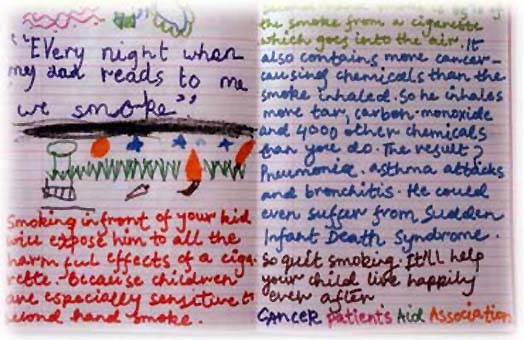 "EVery night when
my dad reads to me
we smoke"
Smoking infront of your kid
will expose him to all the
harmful effects of a ciga-
rette. Because children
are especially sensitive to
second hand smoke.
the smoke from a cigarette
which goes into the air. It
also contains more cancer-
causing chemicals than the
smoke inhaled. So he inhales
more tar, carbon-monoxide
and 4000 other chemicals
than you do. The result?
Pneumonia, asthma attacks
and bronchitis. He could
even suffer from Sudden
Infant Death Syndrome.
So quit smoking. It'll help
your child live happily
ever after
CANCER patients Aid Association